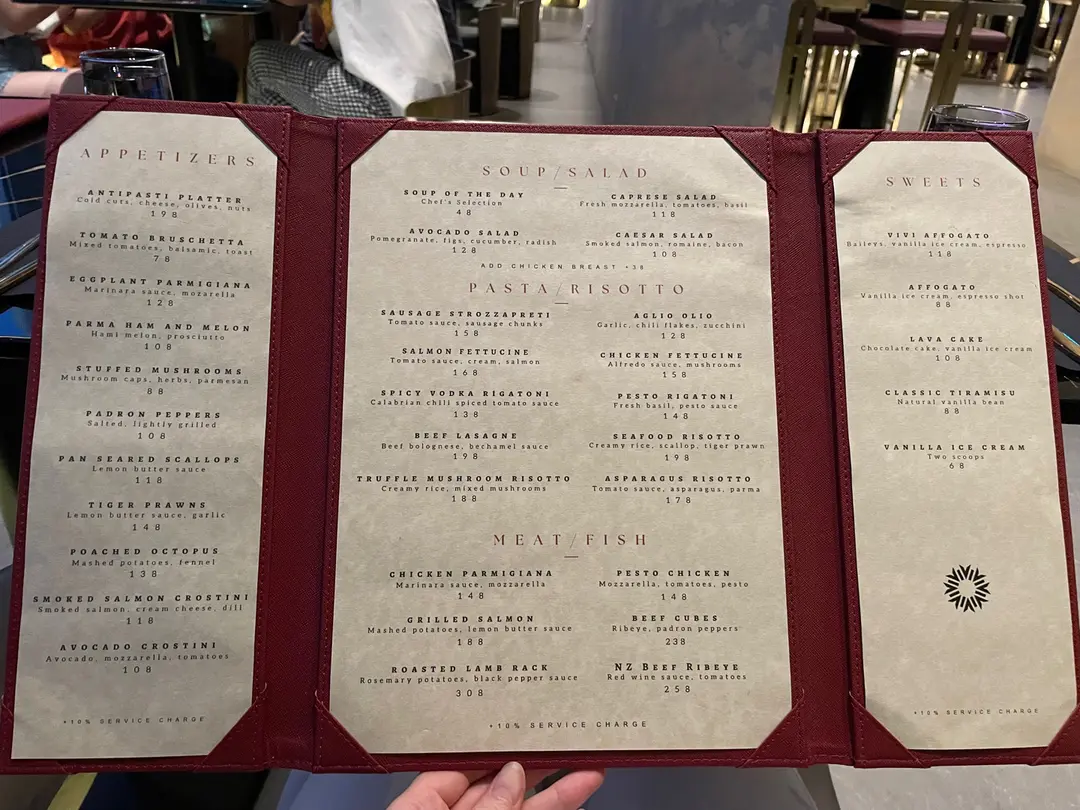 APPETIZERS
ANTIPASTI PLATTER
Cold cuts, cheese, olives, nuts
198
TOMATO BRUSCHETTA
Mixed tomatoes, balsamic, toast
78
EGGPLANT PARMIGIANA
Marinara sauce, mozarella
128
PARMA HAM AND MELON
Hami melon, prosciutto
108
STUFFED MUSHROOMS
Mushroom caps, herbs, parmesan
88
PADRON PEPPERS
Salted, lightly grilled
108
PAN SEARED SCALLOPS
Lemon butter sauce
118
TIGER PRAWNS
Lemon butter sauce, garlic
148
POACHED OCTOPUS
Mashed potatoes, fennel
138
SMOKED SALMON CROSTINI
Smoked salmon, cream cheese, dill
118
AVOCADO CROSTINI
Avocado, mozzarella, tomatoes
108
+10% SERVICE CHARGE
SOUP/SALAD
SOUP OF THE DAY
Chef's Selection
48
CAPRESE SALAD
Fresh mozzarella, tomatoes, basil
118
AVOCADO SALAD
Pomegranate, figs, cucumber, radish
128
CAESAR SALAD
Smoked salmon, romaine, bacon
108
ADD CHICKEN BREAST +38
PASTA/RISOTTO
SAUSAGE STROZZAPRETI
Tomato sauce, sausage chunks
158
AGLIO OLIO
Garlic, chili flakes, zucchini
128
SALMON FETTUCINE
Tomato sauce, cream, salmon
168
CHICKEN FETTUCINE
Alfredo sauce, mushrooms
158
SPICY VODKA RIGATONI
Calabrian chili spiced tomato sauce
138
PESTO RIGATONI
Fresh basil, pesto sauce
148
BEEF LASAGNE
Beef bolognese, bechamel sauce
198
SEAFOOD RISOTTO
Creamy rice, scallop, tiger prawn
198
TRUFFLE MUSHROOM RISOTTO
Creamy rice, mixed mushrooms
188
ASPARAGUS RISOTTO
Tomato sauce, asparagus, parma
178
MEAT/FISH
CHICKEN PARMIGIANA
Marinara sauce, mozzarella
148
PESTO CHICKEN
Mozzarella, tomatoes, pesto
148
GRILLED SALMON
Mashed potatoes, lemon butter sauce
188
BEEF CUBES
Ribeye, padron peppers
238
ROASTED LAMB RACK
Rosemary potatoes, black pepper sauce
308
NZ BEEF RIBEYE
Red wine sauce, tomatoes
258
+10% SERVICE CHARGE
SWEETS
VIVI AFFOGATO
Baileys, vanilla ice cream, espresso
118
AFFOGATO
Vanilla ice cream, espresso shot
88
LAVA CAKE
Chocolate cake, vanilla ice cream
108
CLASSIC TIRAMISU
Natural vanilla bean
88
VANILLA ICE CREAM
Two scoops
68
+10% SERVICE CHARGE